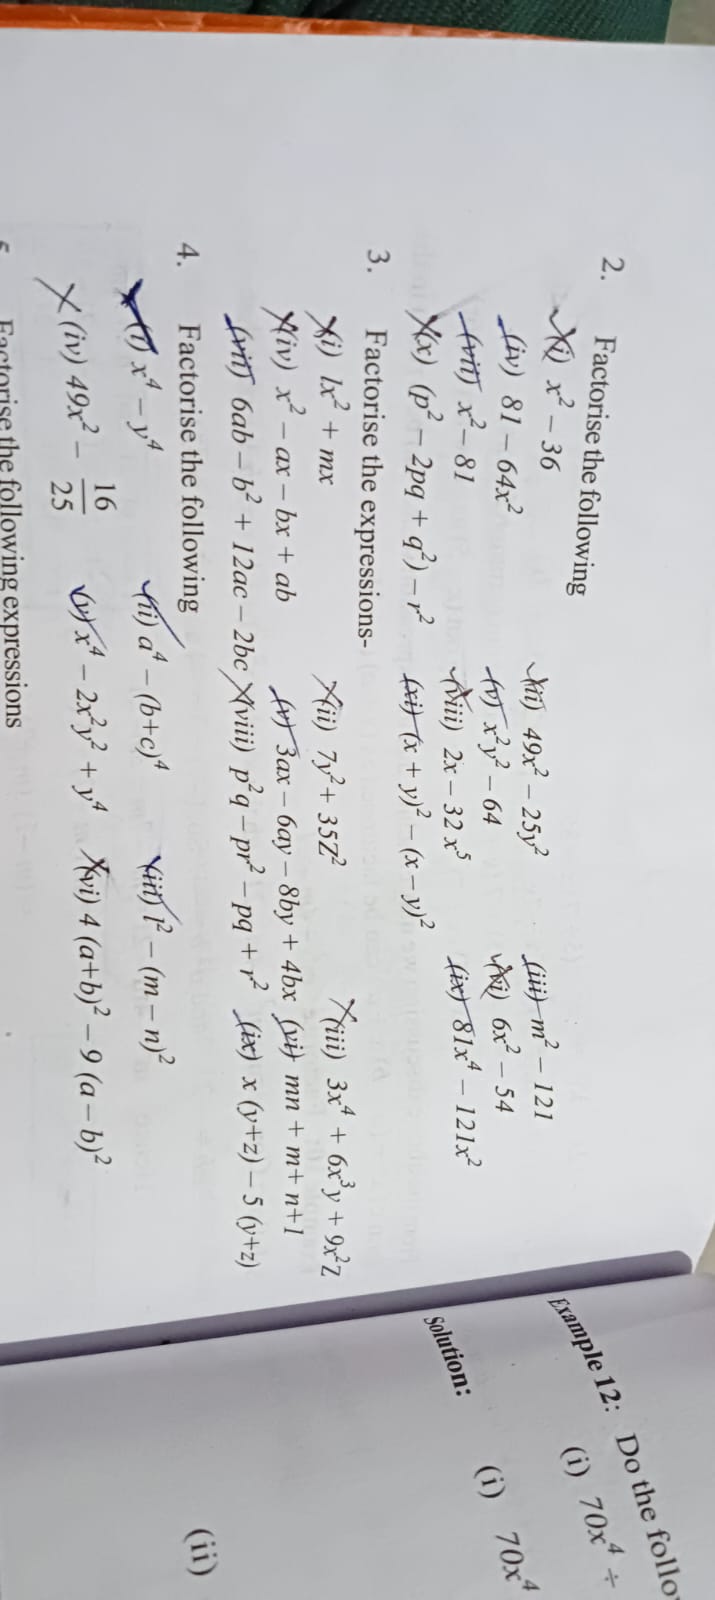 2. Factorise the following
(i) x² – 36 (ii) 49x² – 25y² (iii) m² – 121
(iv) 81 – 64x² (v) x²y² – 64 (vi) 6x² – 54
(vii) x² – 81 (viii) 2x – 32 x⁵ (ix) 81x⁴ – 121x²
(x) (p² – 2pq + q²) – r² (xi) (x + y)² – (x – y)²
3. Factorise the expressions-
(i) lx² + mx (ii) 7y² + 35Z² (iii) 3x⁴ + 6x³y + 9x²Z
(iv) x² – ax – bx + ab (v) 3ax – 6ay – 8by + 4bx (vi) mn + m+ n+1
(vii) 6ab – b² + 12ac – 2bc (viii) p²q – pr² – pq + r² (ix) x (y+z) – 5 (y+z)
4. Factorise the following
(i) x⁴ – y⁴ (ii) a⁴ – (b+c)⁴ (iii) l² – (m – n)²
(iv) 49x² – 16/25 (v) x⁴ – 2x²y² + y⁴ (vi) 4 (a+b)² – 9 (a – b)²
Factorise the following expressions
Example 12: Do the follo
(i) 70x⁴ ÷
Solution: (i) 70x⁴
(ii)